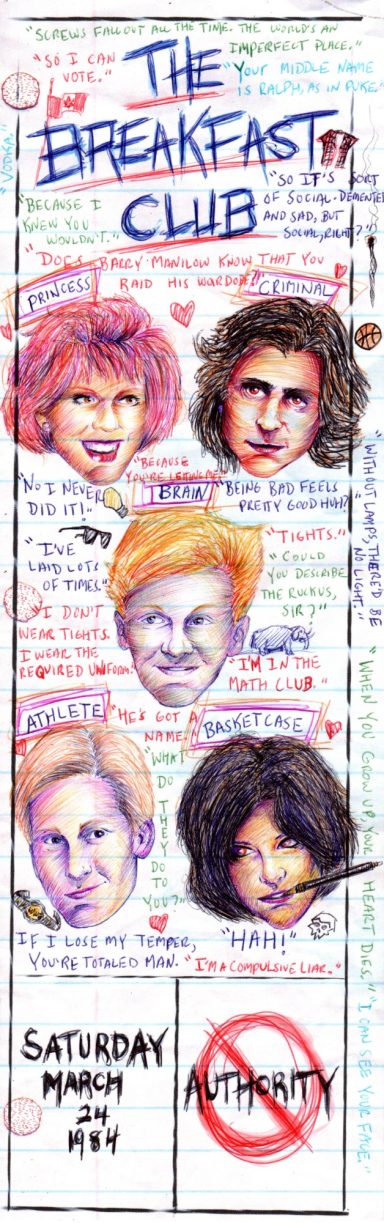 "SCREWS FALL OUT ALL THE TIME. THE WORLD'S AN
IMPERFECT PLACE."
"SO I CAN
VOTE."
THE
"YOUR MIDDLE NAME
IS RALPH, AS IN PUKE."
"VODKA."
BREAKFAST
CLUB
"SO IT'S SORT
OF SOCIAL. DEMENTED
AND SAD, BUT
SOCIAL, RIGHT?"
"BECAUSE I
KNEW YOU
WOULDN'T."
"DOES BARRY MANILOW KNOW THAT YOU
RAID HIS WARDOBE?"
PRINCESS
CRIMINAL
"BECAUSE
YOU'RE LETTING ME."
"NO I NEVER
DID IT!"
BRAIN
"BEING BAD FEELS
PRETTY GOOD HUH?"
"WITHOUT LAMPS, THERE'D BE
NO LIGHT."
"I'VE
LAID LOTS
OF TIMES."
"TIGHTS."
"COULD
YOU DESCRIBE
THE RUCKUS,
SIR?"
"I DON'T
WEAR TIGHTS.
I WEAR THE
REQUIRED UNIFORM."
"I'M IN THE
MATH CLUB."
ATHLETE
"HE'S GOT A
NAME."
BASKETCASE
"WHAT
DO
THEY
DO
TO
YOU?"
"WHEN YOU GROW UP, YOUR HEART DIES."
IF I LOSE MY TEMPER,
YOU'RE TOTALED MAN.
"HAH!"
"I'M A COMPULSIVE LIAR."
"I CAN SEE YOUR FACE."
SATURDAY
MARCH
24
1984
AUTHORITY